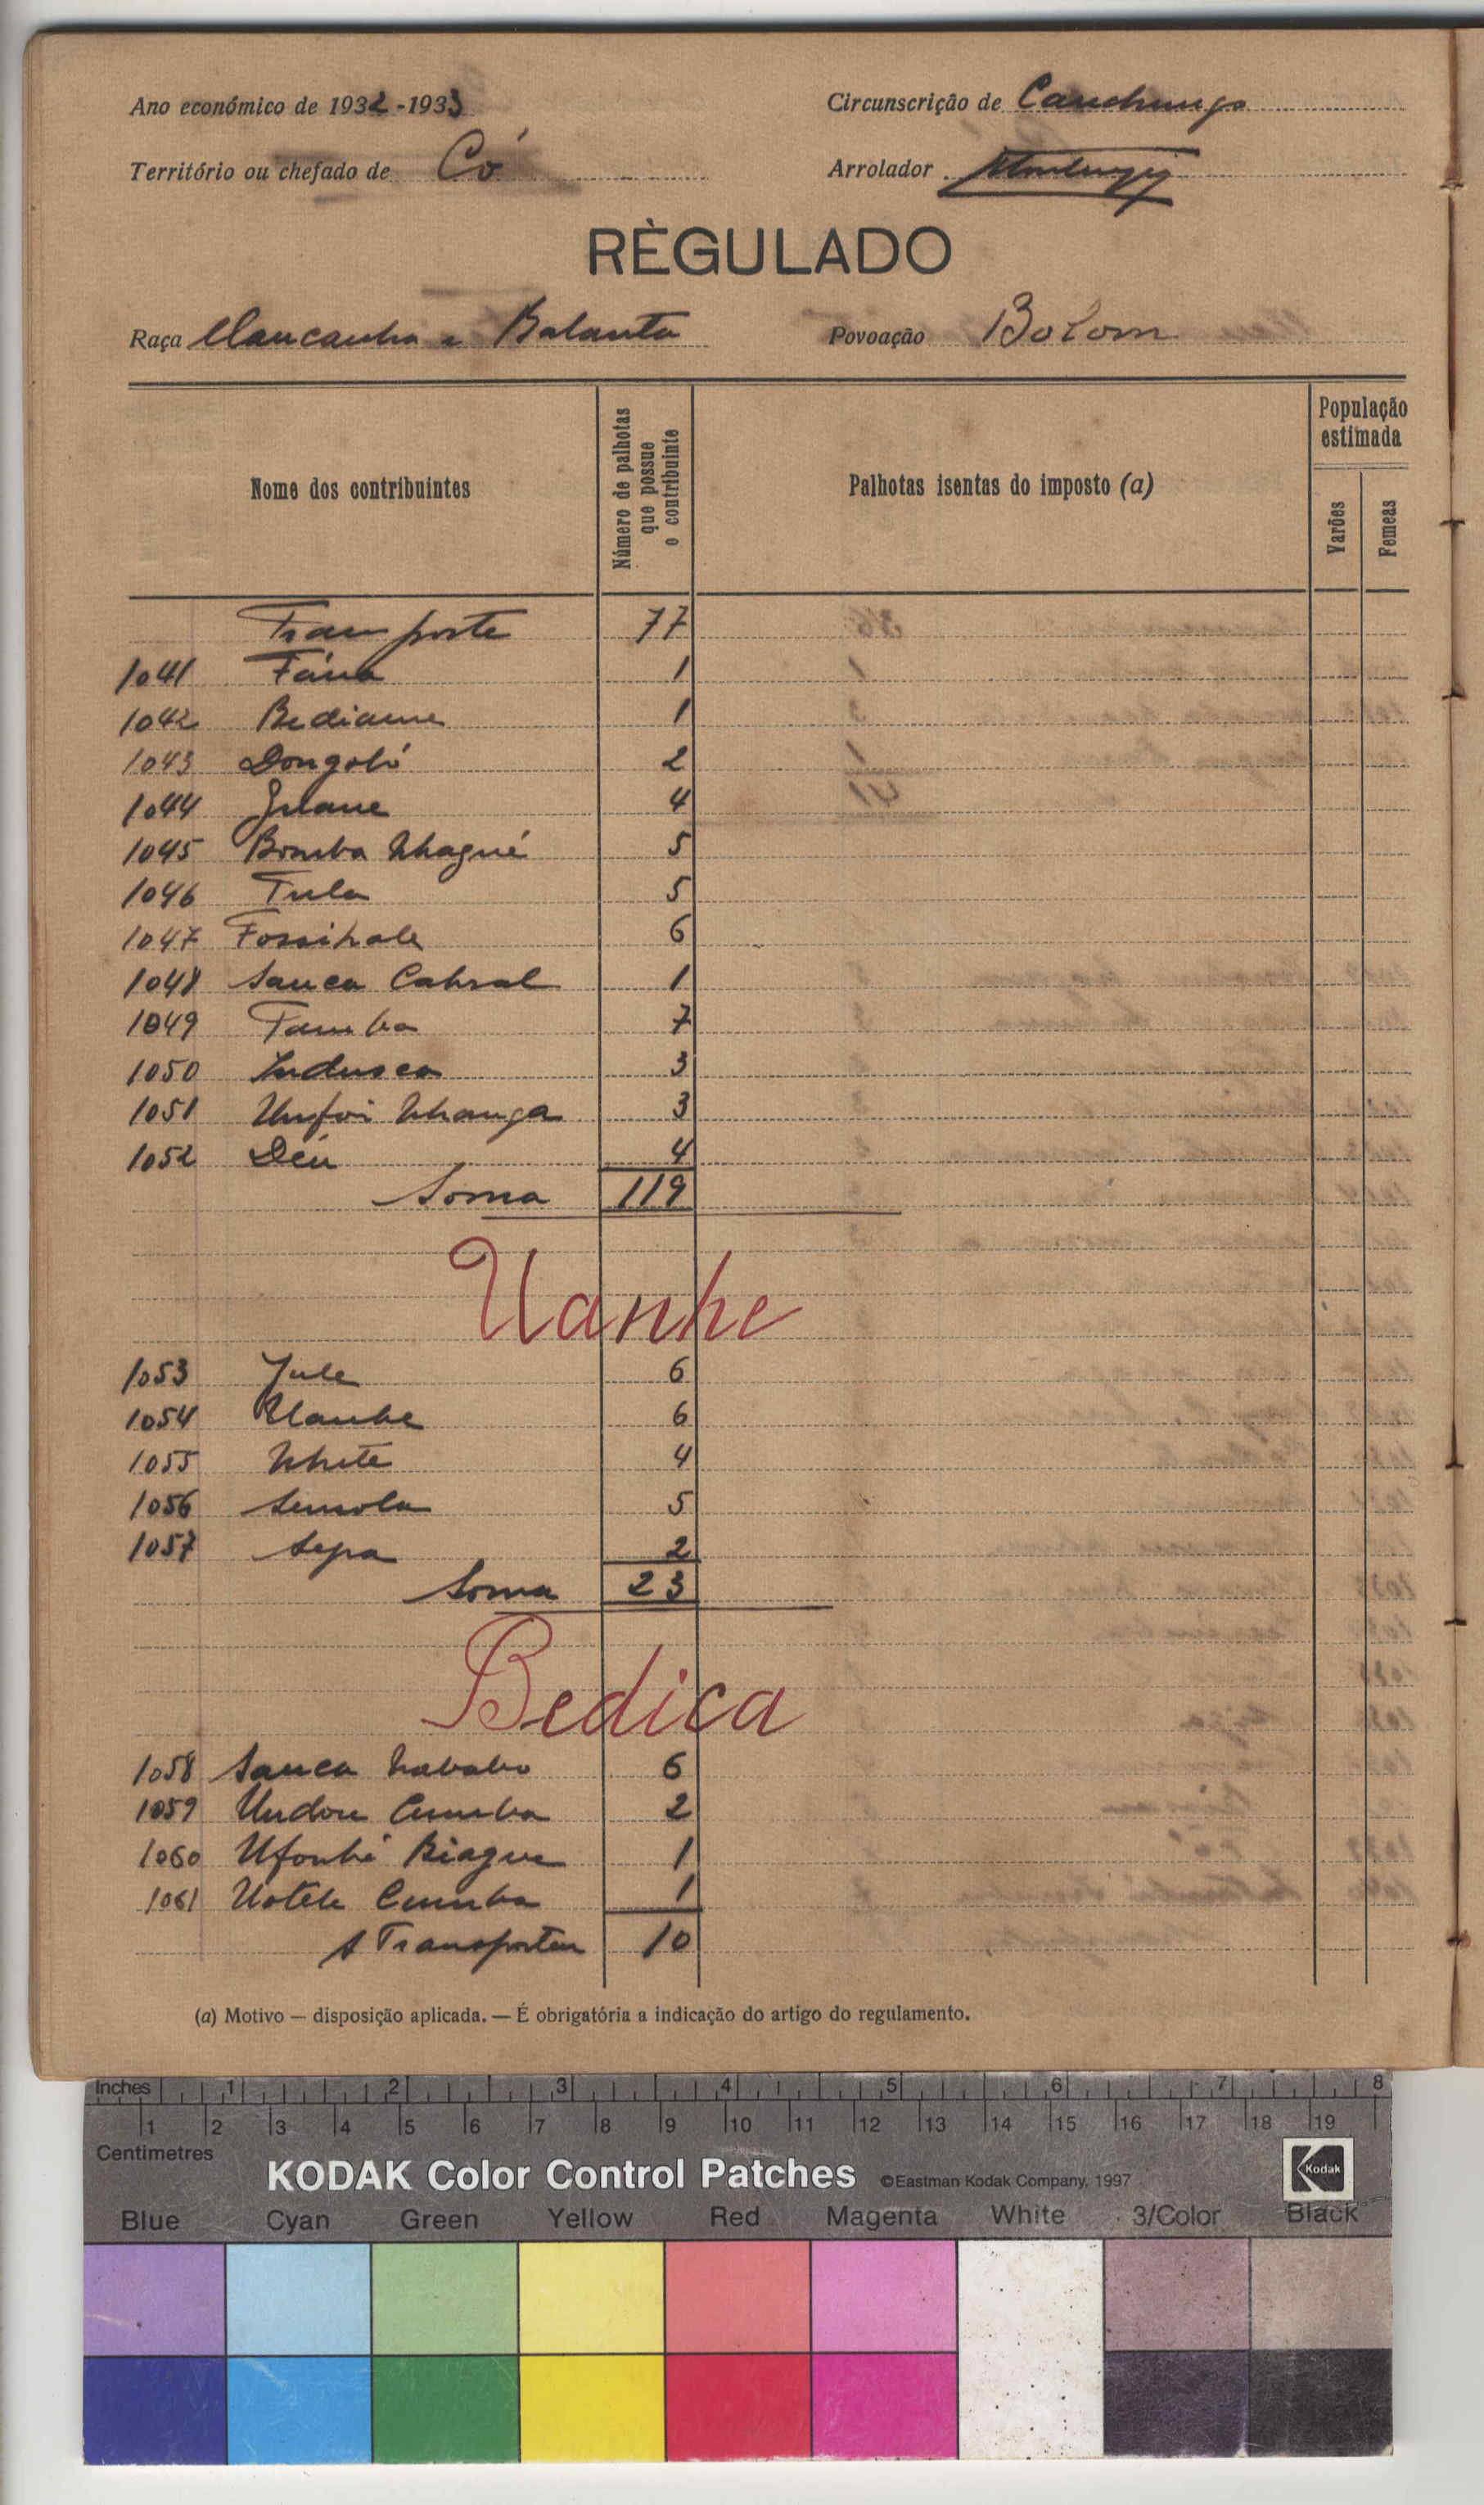 Ano económico de 1932-1933
Circunscrição de Canchungo
Território ou chefado de Có
Arrolador
RÈGULADO
Raça Mancanha e Balanta
Povoação Bolom
Nome dos contribuintes
Número de palhotas que possue o contribuinte
Palhotas isentas do imposto (a)
População estimada
Varões
Femeas
Transporte 77
1041 Fána 1
1042 Bediame 1
1043 Dongoló 2
1044 Juane 4
1045 Bomba Nhagué 5
1046 Tula 5
1047 6
1048 Sanca Cabral 1
1049 Tamba 7
1050 Indusca 3
1051 Unfoi Nhanga 3
1052 Déu 4
Soma 119
Uanhe
1053 Jule 6
1054 Uanhe 6
1055 Nhite 4
1056 Semola 5
1057 Sepa 2
Soma 23
Bedica
1058 Sanca Nababo 6
1059 Undou Cumba 2
1060 Ufonhé Biague 1
1061 Uotele Cumba 1
A Transportar 10
(a) Motivo — disposição aplicada. — É obrigatória a indicação do artigo do regulamento.
Inches 1 2 3 4 5 6 7 8
1 2 3 4 5 6 7 8 9 10 11 12 13 14 15 16 17 18 19
Centimetres
KODAK Color Control Patches ©Eastman Kodak Company, 1997 Kodak
Blue Cyan Green Yellow Red Magenta White 3/Color Black